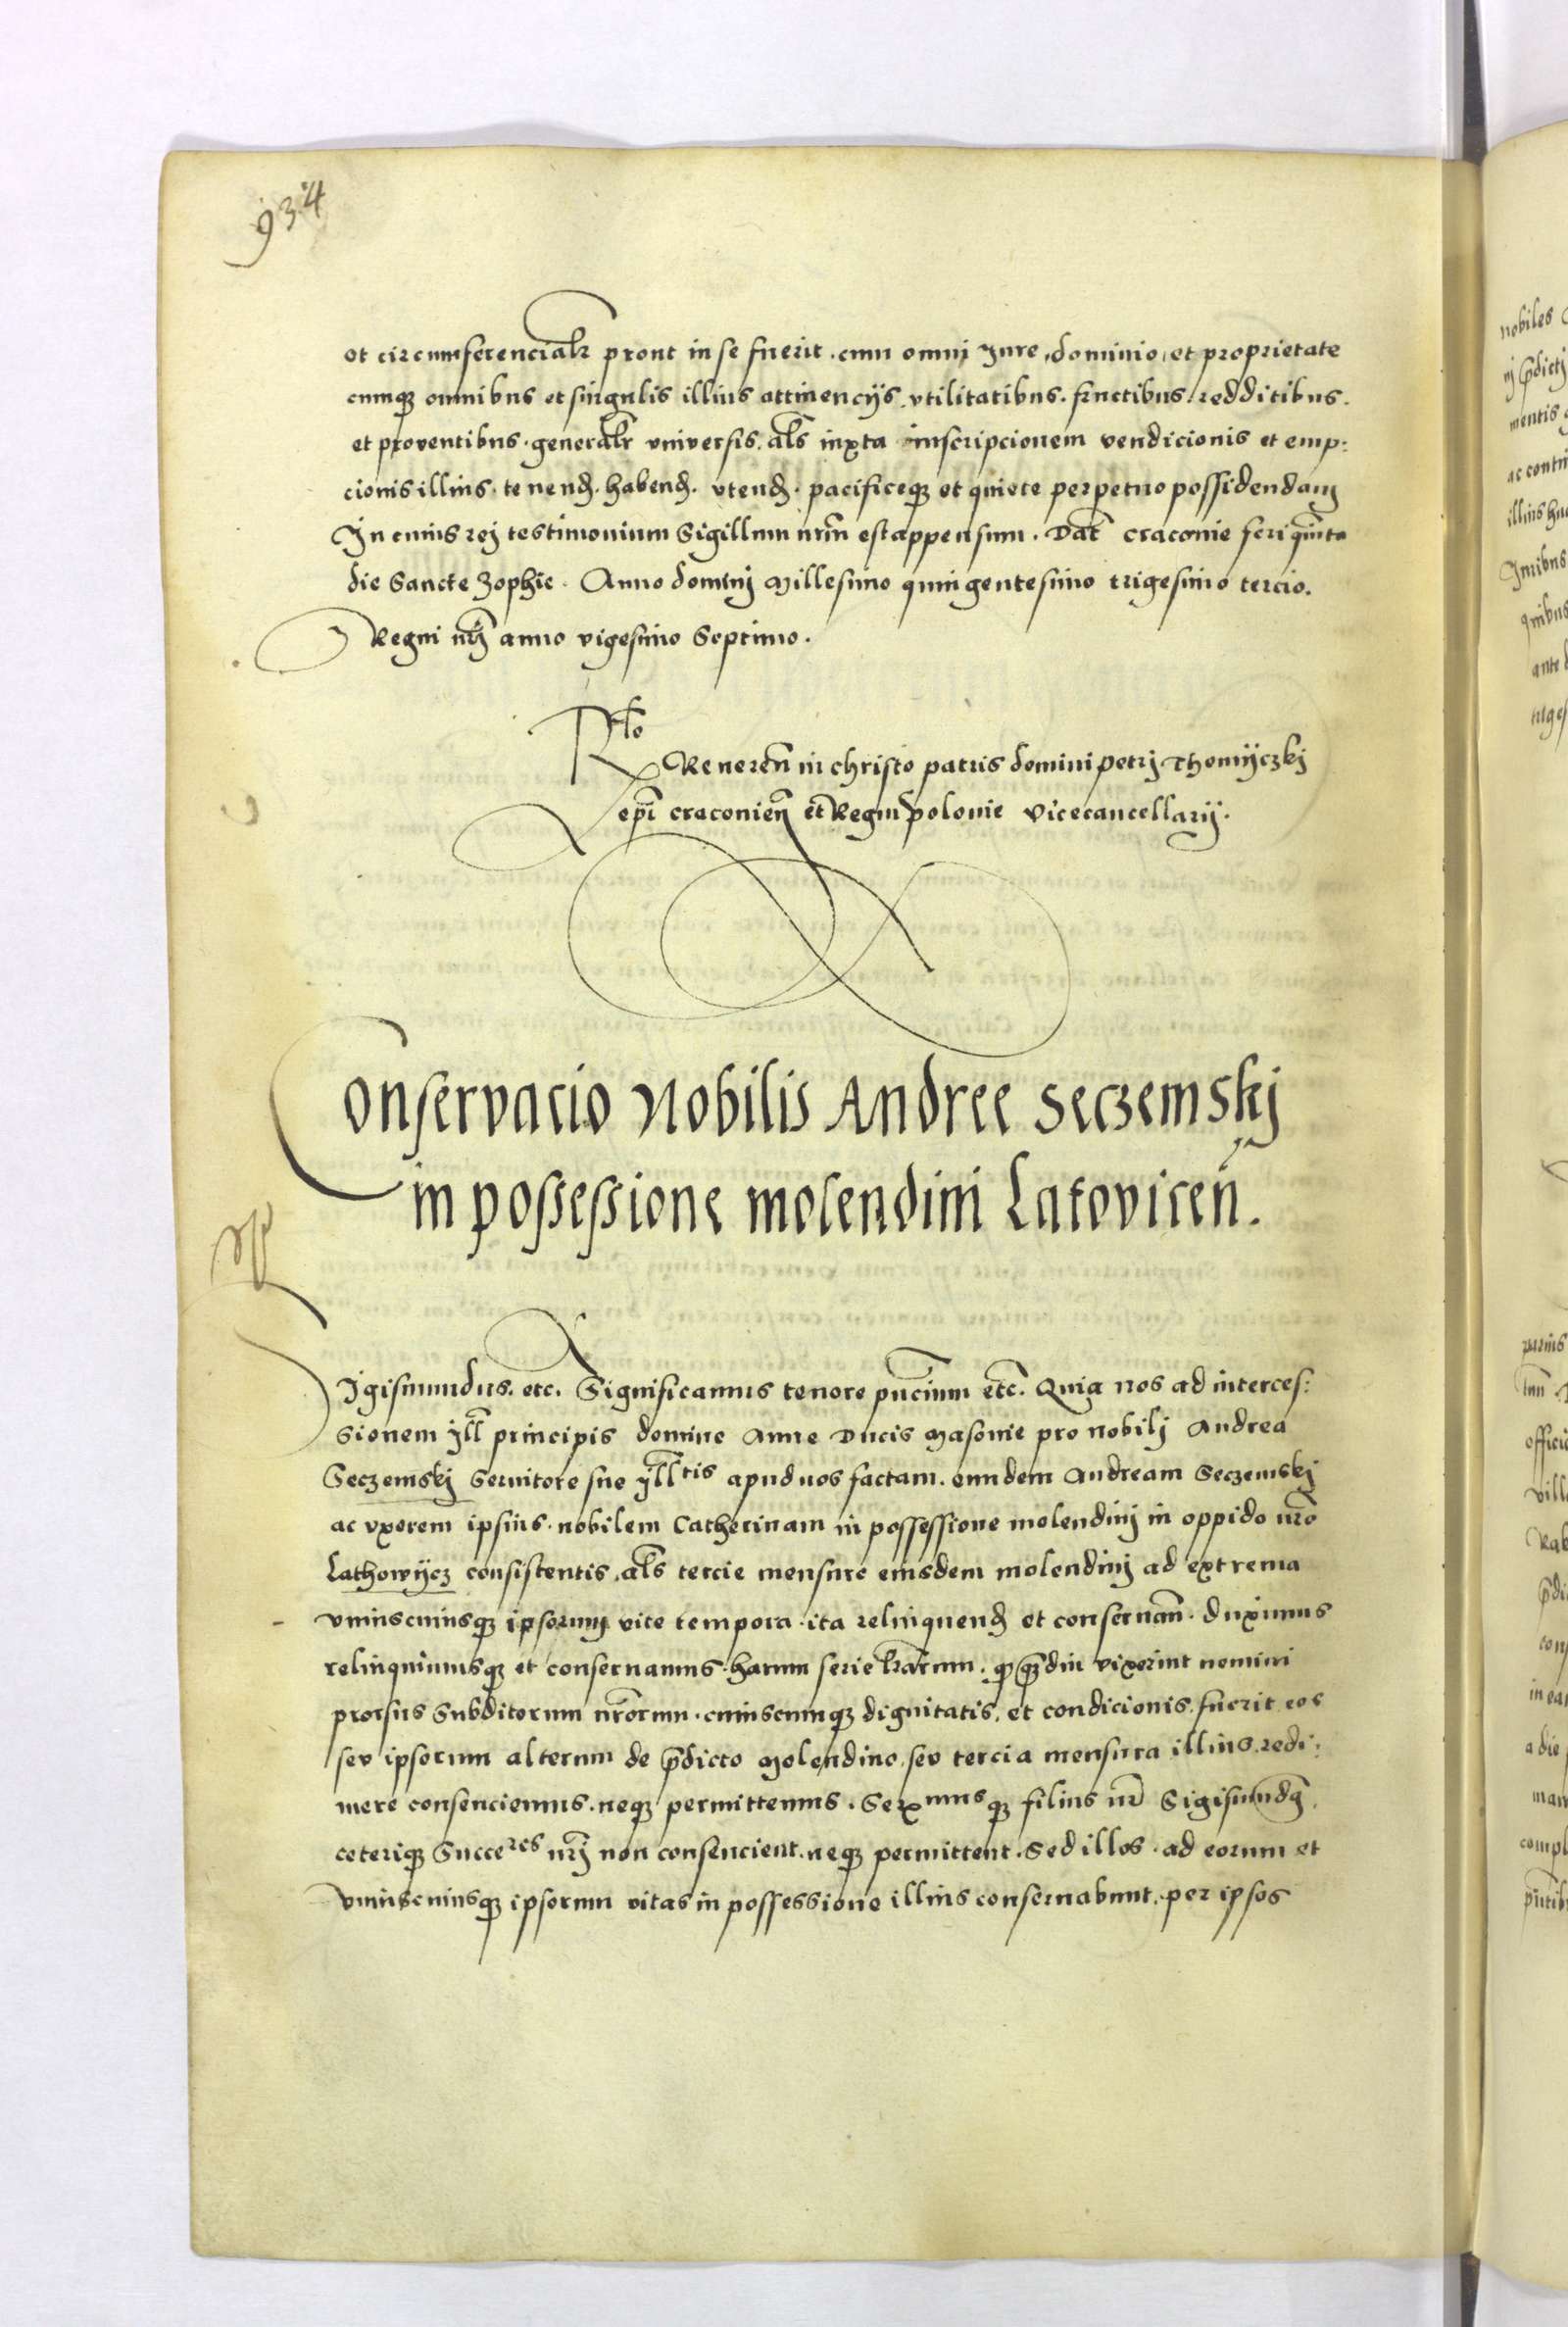 934
et circumferencialr prout in se fuerit. cum omni Jure, dominio, et proprietate
cumqꝫ omnibus et singulis illius attinencijs. vtilitatibus. fructibus. redditibus.
et proventibus. generalr vniversis. als iuxta inscripcionem vendicionis et emp:
cionis illius. tenend. habend. vtend. pacificeqꝫ et quiete perpetuo possidendam
In cuius rej testimonium Sigillum nrm est appensum. Dat Craconie feri quinta
die Sancte Zophie. Anno domini Millesimo quingentesimo trigesimo tercio.
Regni nrj anno vigesimo Septimo.
Rlo
Reveren in christo patris domini petrj Thomijczkj
epi Craconien et Regni polonie Vicecancellarij.
Conservacio Nobilis Andree Seczemskj
in possessione molendini Latovicen.
Sigismundus. etc. Significamus tenore pncium etc. Quia nos ad interces:
sionem Jll principis domine Anne Ducis Masovie pro nobilj Andrea
Seczemskj Servitore sue Jlltis apud nos factam. eundem Andream Seczemskj
ac vxorem ipsius. nobilem Catherinam in possessione molendinj in oppido nro
Lathowijcz consistentis, als tercie mensure eiusdem molendinj ad extrema
vniuscuiusqꝫ ipsorum vite tempora. ita relinquend et conservan. duximus
relinquimusqꝫ et conservamus. harum serie lrarum. qꝫ qꝫdiu vixerint nemini
prorsus Subditorum nrorum. cuiuscumqꝫ dignitatis, et condicionis. fuerit eos
seu ipsorum alterum de pdicto Molendino, seu tercia mensura illius. redi:
mere consenciemus. neqꝫ permittemus. Serxmusqꝫ filius nr Sigismundq,
ceteriqꝫ Succeres nrj non consencient. neqꝫ permittent. Sed illos. ad eorum et
vniuscuiusqꝫ ipsorum vitas in possessione illius conservabunt. per ipsos